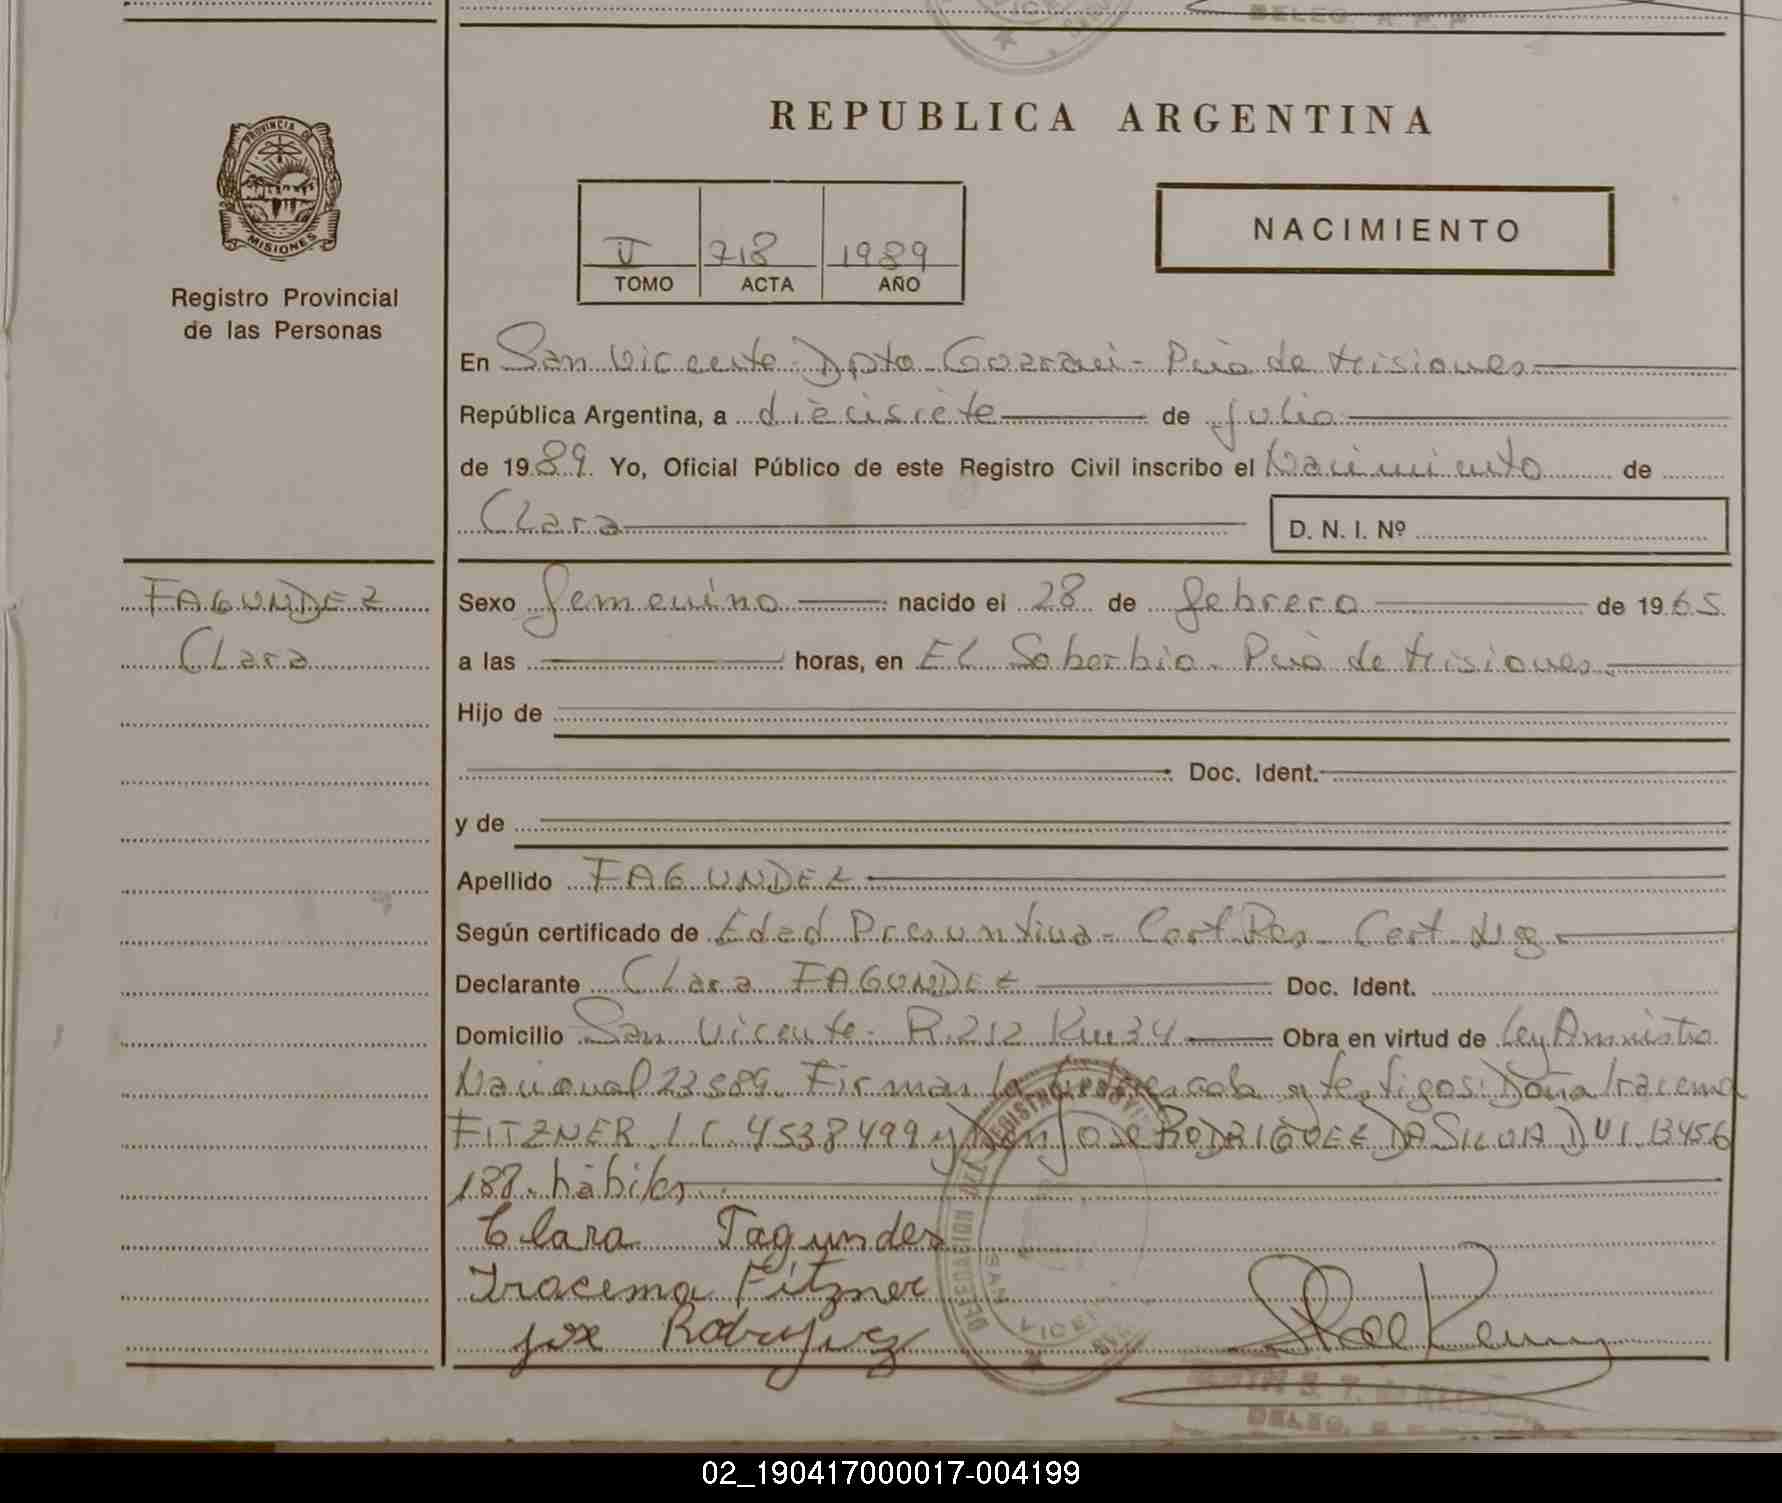 REPUBLICA ARGENTINA
PROVINCIA DE
MISIONES
Registro Provincial
de las Personas
V 718 1989
TOMO ACTA AÑO
NACIMIENTO
En San Vicente - Dpto Guarani - Pcia de Misiones
República Argentina, a diecisiete de julio
de 1989. Yo, Oficial Público de este Registro Civil inscribo el Nacimiento de
Clara D. N. I. Nº
FAGUNDEZ
Clara
Sexo femenino nacido el 28 de febrero de 1965
a las horas, en EL Soberbio - Pcia de Misiones.
Hijo de
Doc. Ident.
y de
Apellido FAGUNDEZ
Según certificado de Edad Presuntiva - Cert Res - Cert Neg -
Declarante Clara FAGUNDEZ Doc. Ident.
Domicilio San Vicente - R.212 Km 34 Obra en virtud de Ley Amnistia
Nacional Firman la y testigos: Doña Iracema
FITZNER L C 4538499 y Don Jose RODRIGUEZ DA SILVA D N I 13456
188. hábiles
Clara Fagundes
Iracema Fitzner
jose Rodriguez
DELEG.
02_190417000017-004199